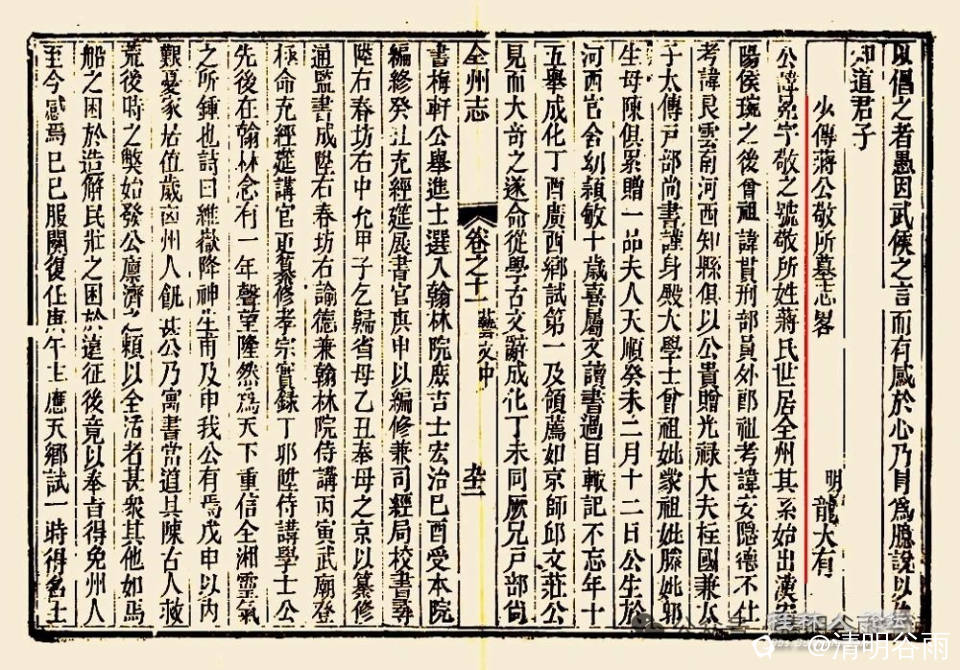 以倡之者愚因武侯之言而有感於心乃冐爲臆說以俟
知道君子
少傅蔣公敬所墓志畧
明龍大有
公諱冕字敬之號敬所姓蔣氏世居全州其系始出漢安
陽侯琬之後曾祖諱貫刑部員外郎祖考諱安隱德不仕
考諱良雲南河西知縣俱以公貴贈光禄大夫柱國兼太
子太傅戸部尚書謹身殿大學士曾祖妣蒙祖妣滕妣郭
生母陳俱累贈一品夫人天順癸未二月十二日公生於
河西官舍幼頴敏十歲喜屬文讀書過目輒記不忘年十
五舉成化丁酉廣西鄉試第一及領薦如京師邱文莊公
見而大竒之遂命從學古文辭成化丁未同厥兄戸部尚
全州志
卷之十一
藝文中
書梅軒公舉進士選入翰林院庶吉士宏治已酉受本院
編修癸丑充經筵展書官庚申以編修兼司經局校書尋
陞右春坊右中允甲子乞歸省母乙丑奉母之京以纂修
通監書成陞右春坊右諭德兼翰林院侍講丙寅武廟登
極命充經筵講官更纂修孝宗實録丁卯陞侍講學士公
先後在翰林念有一年聲望隆然爲天下重信全湘靈氣
之所鍾也詩曰維嶽降神生甫及申我公有焉戊申以内
艱憂家居值歲凶州人飢甚公乃寓書當道具陳古人救
荒後時之獘始發公廪濟之頼以全活者甚衆其他如馬
船之困於造解民壯之困於遠征後竟以奉旨得免州人
至今感焉已巳服闋復任庚午主應天鄉試一時得名士
@清明谷雨